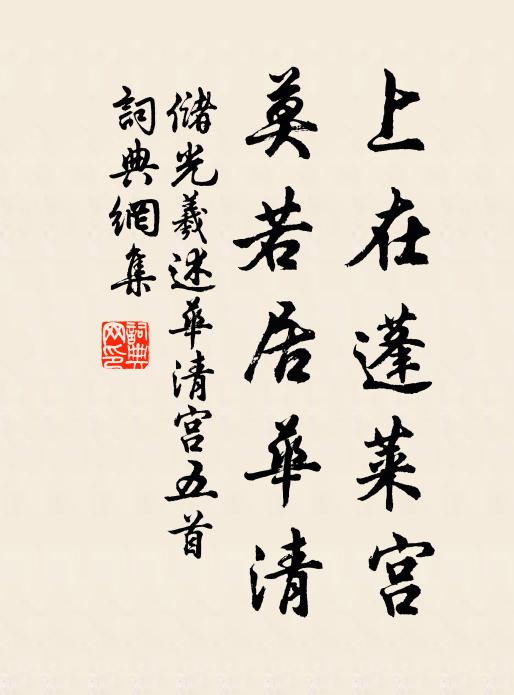 上在蓬莱宫
莫若居華清
儲光羲述華清宫五首
詞典網集
詞典网印